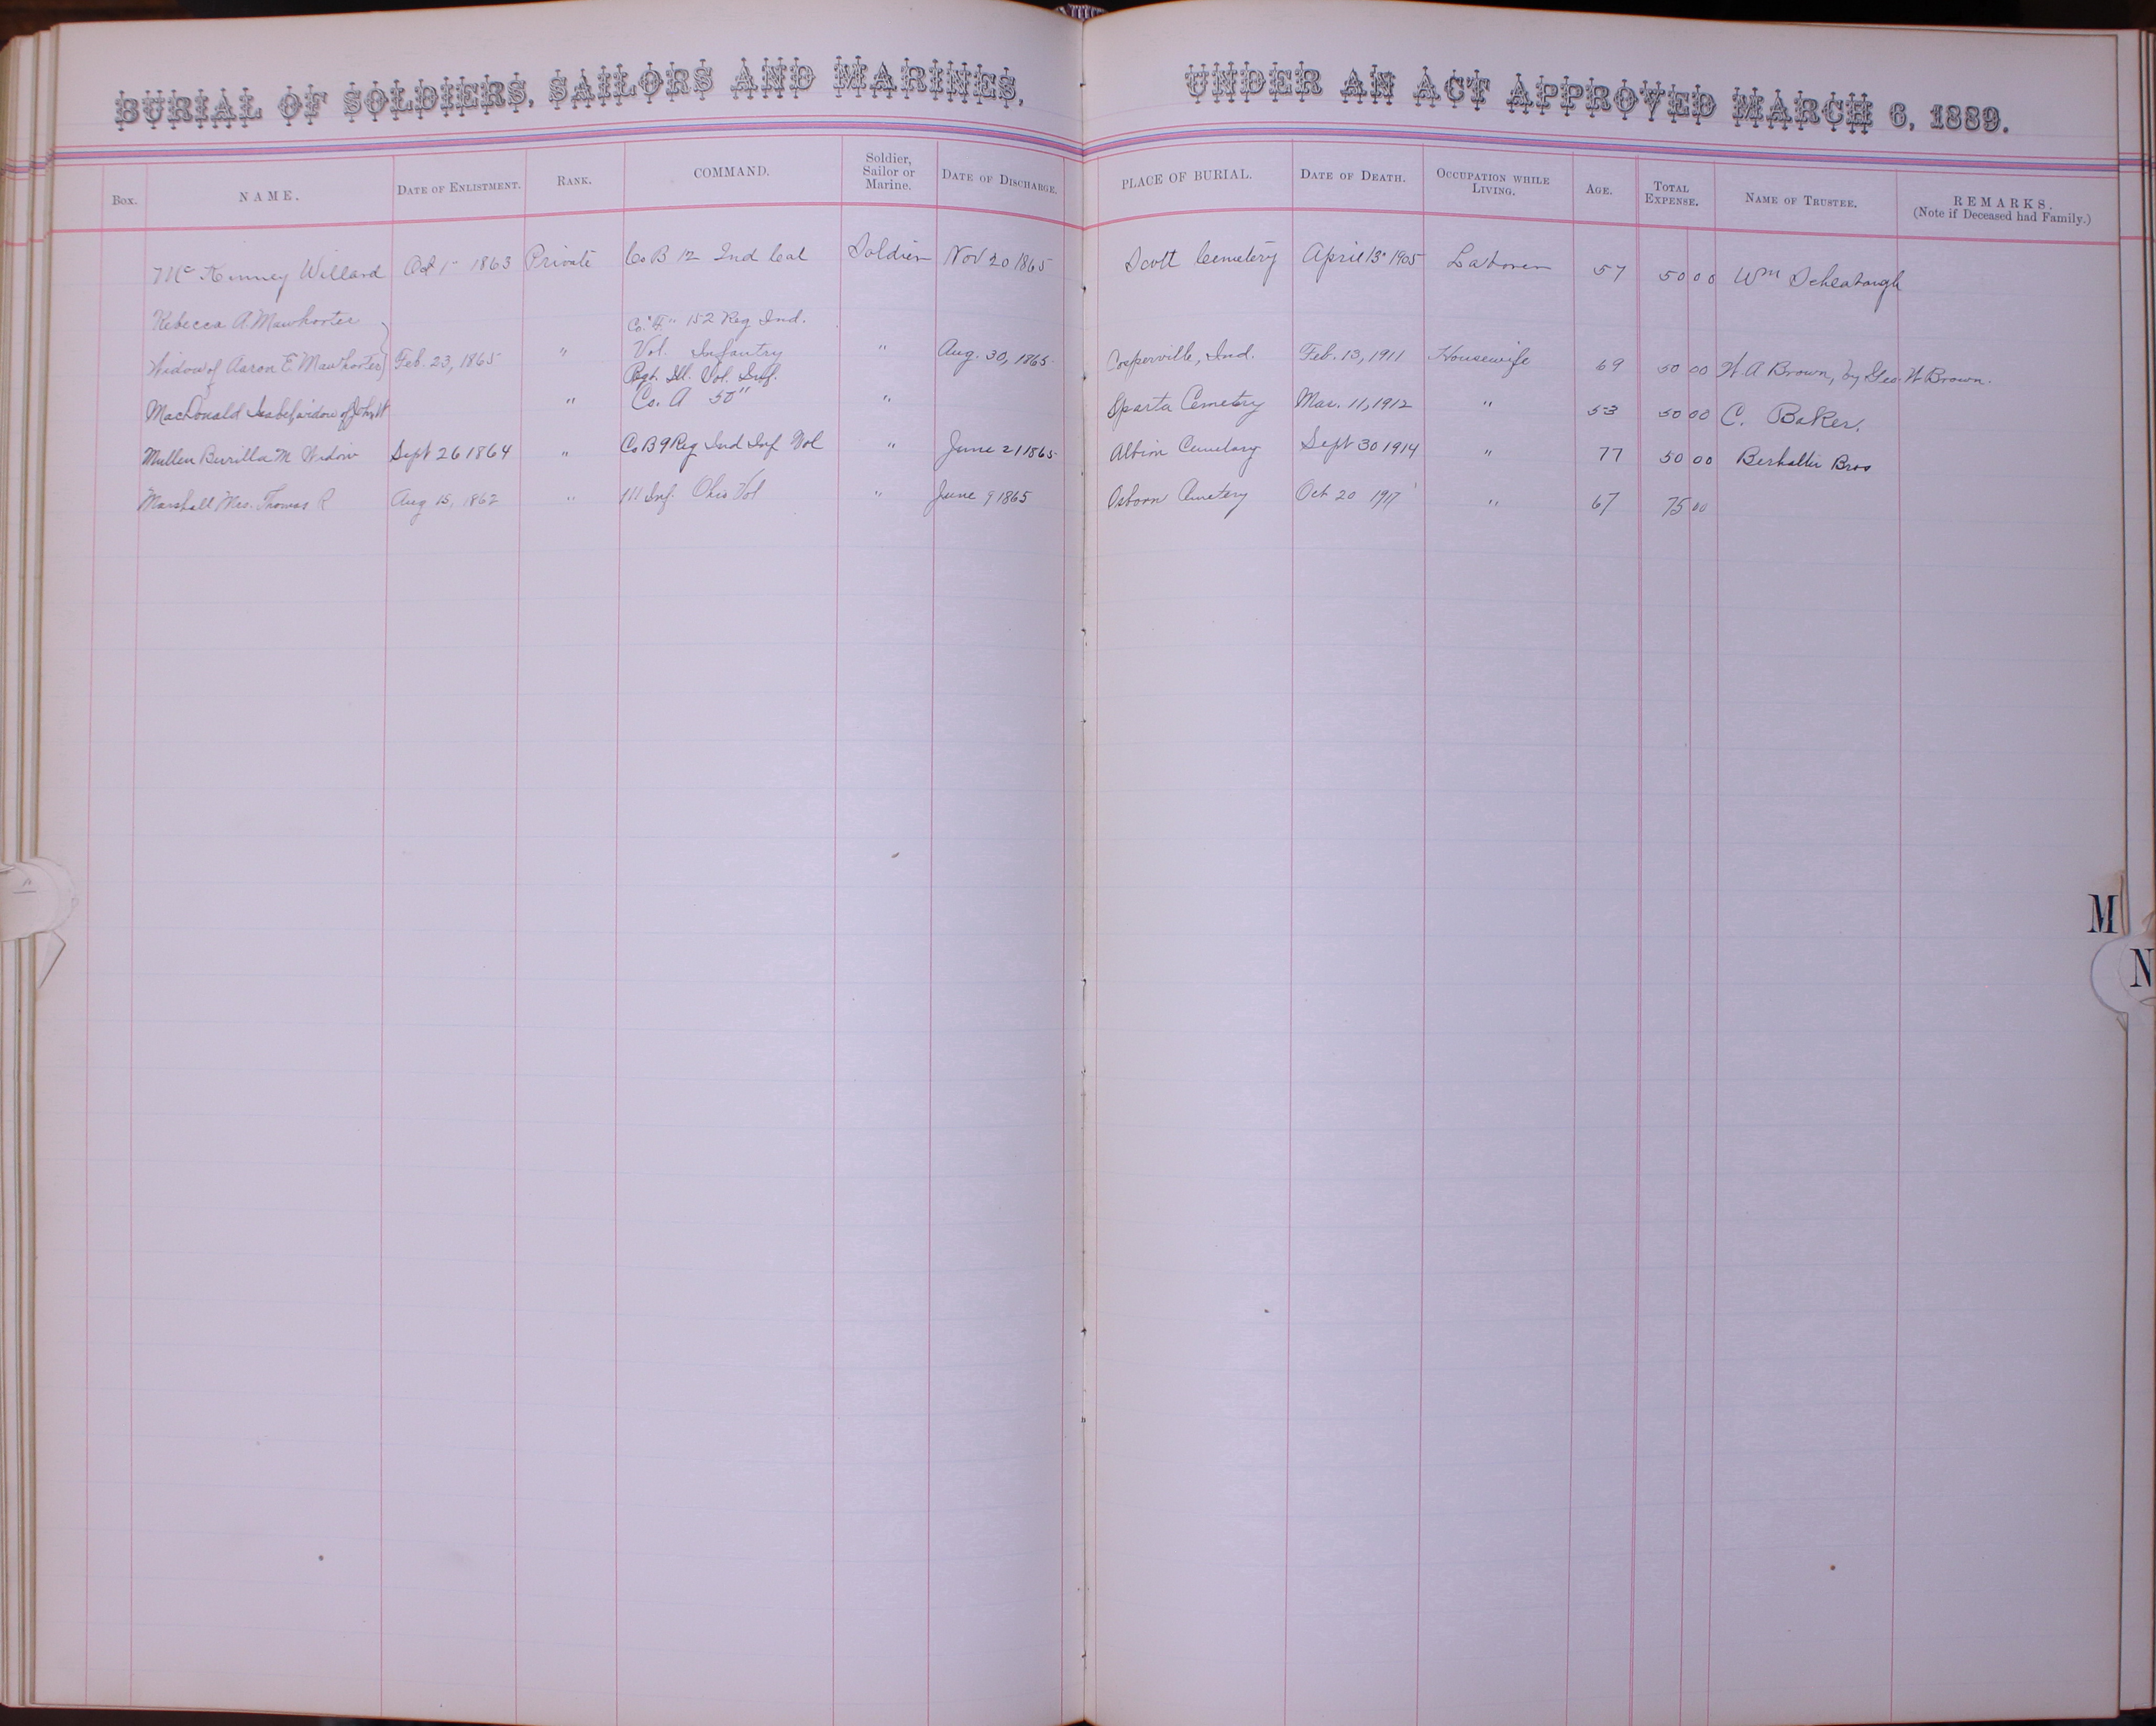 BURIAL OF SOLDIERS, SAILORS AND MARINES, UNDER AN ACT APPROVED MARCH 6, 1889.
Box. NAME. DATE OF ENLISTMENT. RANK. COMMAND. Soldier, Sailor or Marine. DATE OF DISCHARGE. PLACE OF BURIAL. DATE OF DEATH. OCCUPATION WHILE LIVING. AGE. TOTAL EXPENSE. NAME OF TRUSTEE. REMARKS. (Note if Deceased had Family.)
Mc Kinney Willard Oct 1 - 1863 Private Co B 12 Ind Cal Soldier Nov 20 1865 Scott Cemetery April 13" 1905 Laborer 57 50 00 Wm
Rebecca A. Mawhorter Co. "F" 152 Reg Ind.
Widow of Aaron E. Mawhorter Feb. 23, 1865 " Vol. Infantry " Aug. 30, 1865 Cosperville, Ind. Feb. 13, 1911 Housewife 69 50 00 W. A Brown, by Geo. W Brown.
Regt. Ill. Vol. Inf.
MacDonald Isabel, widow of John W " Co. A 50" " Sparta Cemetry Mar. 11, 1912 " 53 50 00 C. Baker.
Mullen M Widow Sept 26 1864 " Co B 9 Reg Ind Inf Vol " June 21 1865 Albion Cemetary Sept 30 1914 " 77 50 00 Berhalter Bros
Marshall Mrs. Thomas R Aug 15, 1862 " 111 Inf. Ohio Vol " June 9 1865 Osborn Cemetery Oct 20 1917 " 67 75 00
M
N